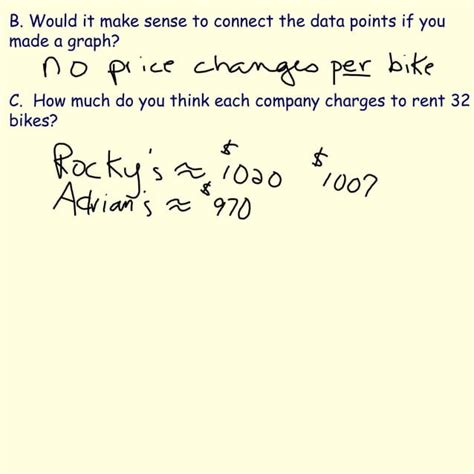 B. Would it make sense to connect the data points if you
made a graph?
no price changes per bike
C. How much do you think each company charges to rent 32
bikes?
Rocky's ≈ $1020 $1007
Adrian's ≈ $970